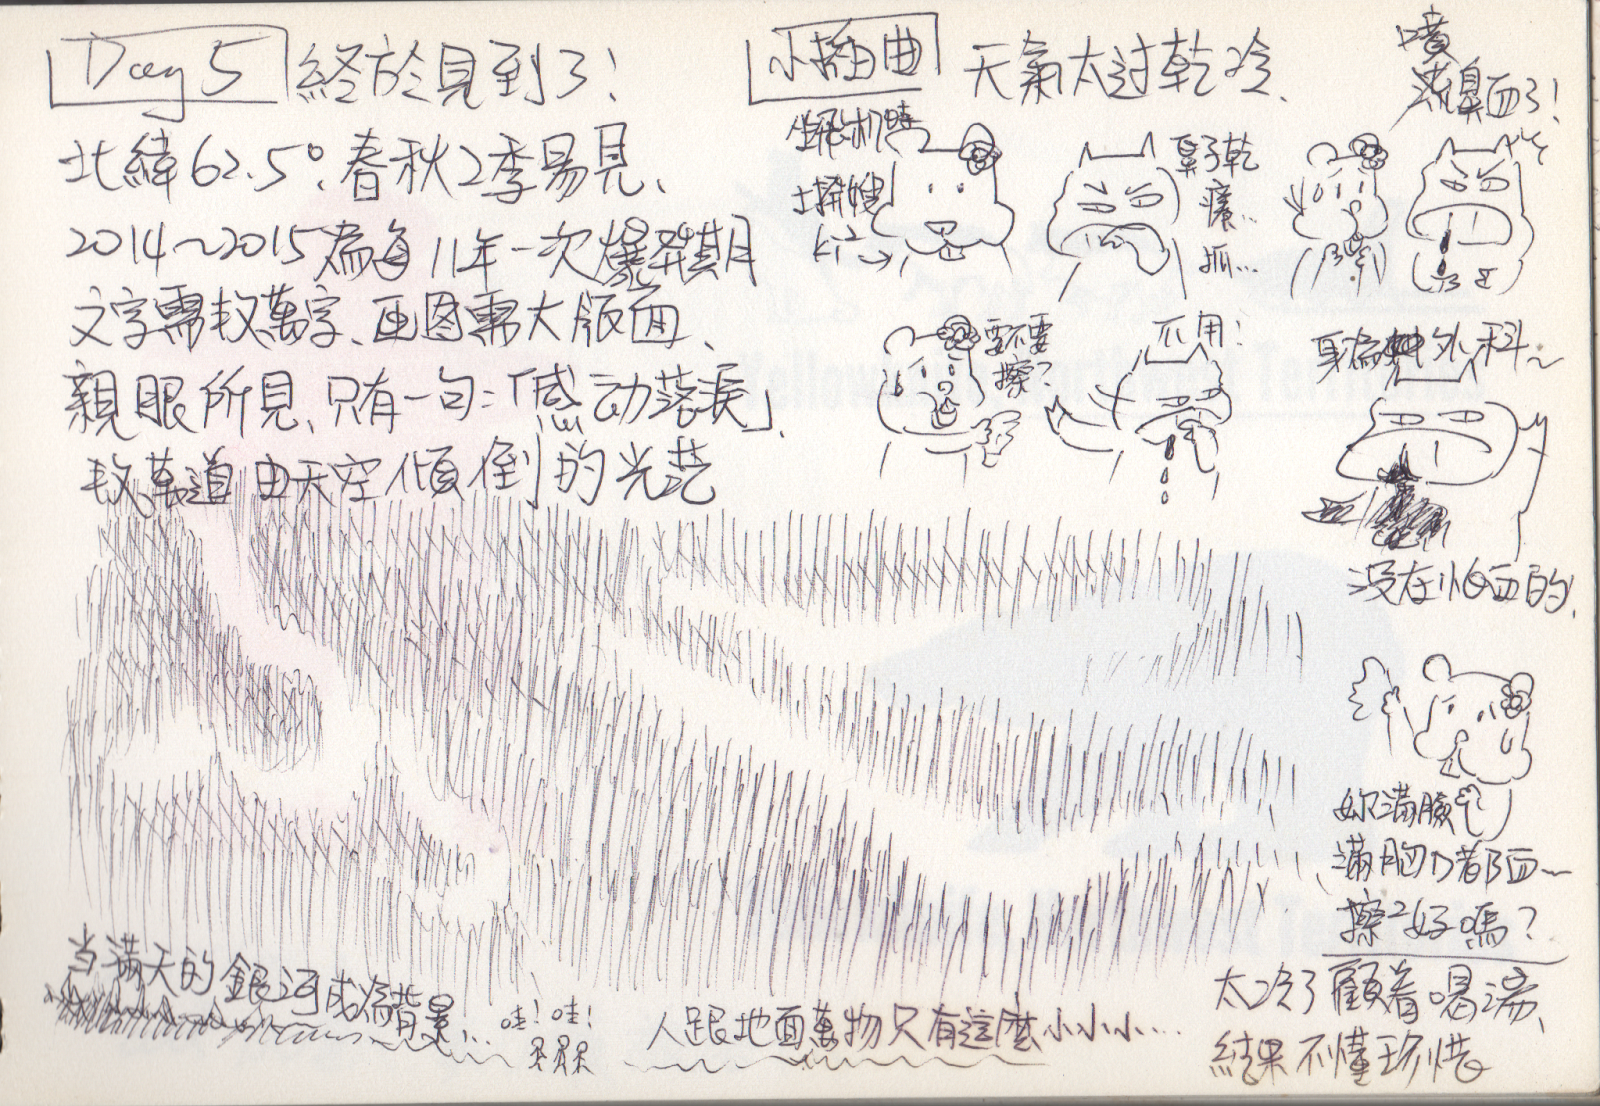 Day 5 終於見到了!
北緯62.5°.春秋2季易見、
2014~2015為每11年一次爆發期
文字需数萬字、画图需大版面、
親眼所見、只有一句:「感动落淚」、
数萬道由天空傾倒的光芒
当满天的銀河成為背景...
哇!哇!
人跟地面萬物只有這麼小小小...
小插曲 天氣太过乾冷、
坐飛机時
鼻子乾
癢..
抓...
噴
鼻血了!
要不要
擦?
不用!
身為外科~
没在怕血的、
妳滿臉
滿胸口都血~
擦2好嗎?
太冷了顧着喝湯、
結果不懂珍惜